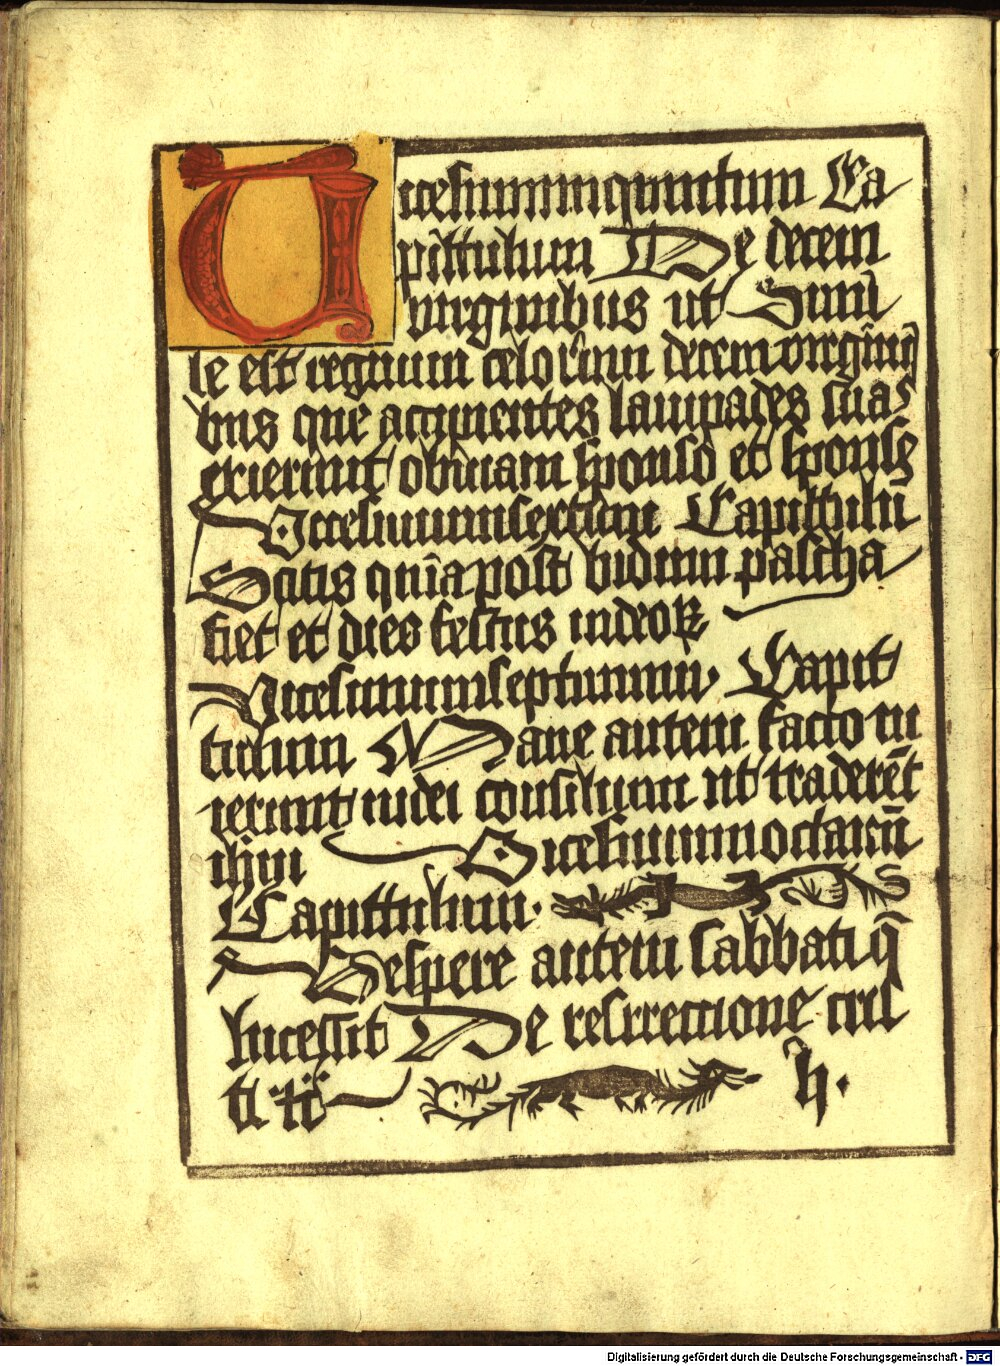 Uicesimumquintum Ca
pittulum De decem
virginibus ut Simi
le est regnum celorum decem virginiq
bus que accipientes lampades suas
exierunt obuiam sponso et sponse
Vicesimumsextum Capittulū
Scitis quīa post biduum pascha
fiet et dies festus iudeoꝝ
Vicesimumseptimum Capit
tulum Mane autem facto in
ierunt iudei consilium ut traderēt
ihm Vicesimumoctauū
Capittulum.
Vespere autem sabbati q̄
lucessit De resrrectione cris
ti ꝛc̄ h.
Digitalisierung gefördert durch die Deutsche Forschungsgemeinschaft - DFG